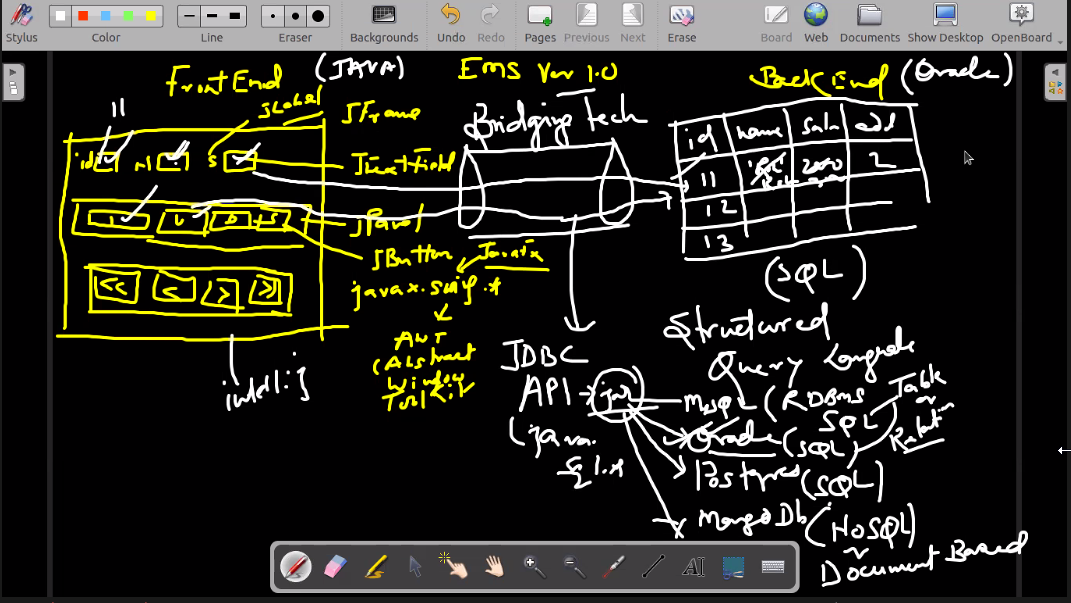 Stylus
Color
Line
Eraser
Backgrounds
Undo
Redo
Pages
Previous
Next
Erase
Board
Web
Documents
Show Desktop
OpenBoard
FrontEnd (JAVA)
EMS Ver 1.0
BackEnd (Oracle)
11
JLabel
JFrame
Bridging tech
id
N
S
JTextField
JPanel
JButton
Javatx
javax.swing.*
AWT
(Abstract
Window
Toolkit
<<
<
>
>>
id name sala add
11 2000 2
12
13
(SQL)
Structured
Query
JDBC
API
jar
(java.
sql.*
MySQL (RDBMS
SQL
Table
or
Oracle (SQL)
Postgres (SQL)
MongoDb (NoSQL)
Document Based
AI